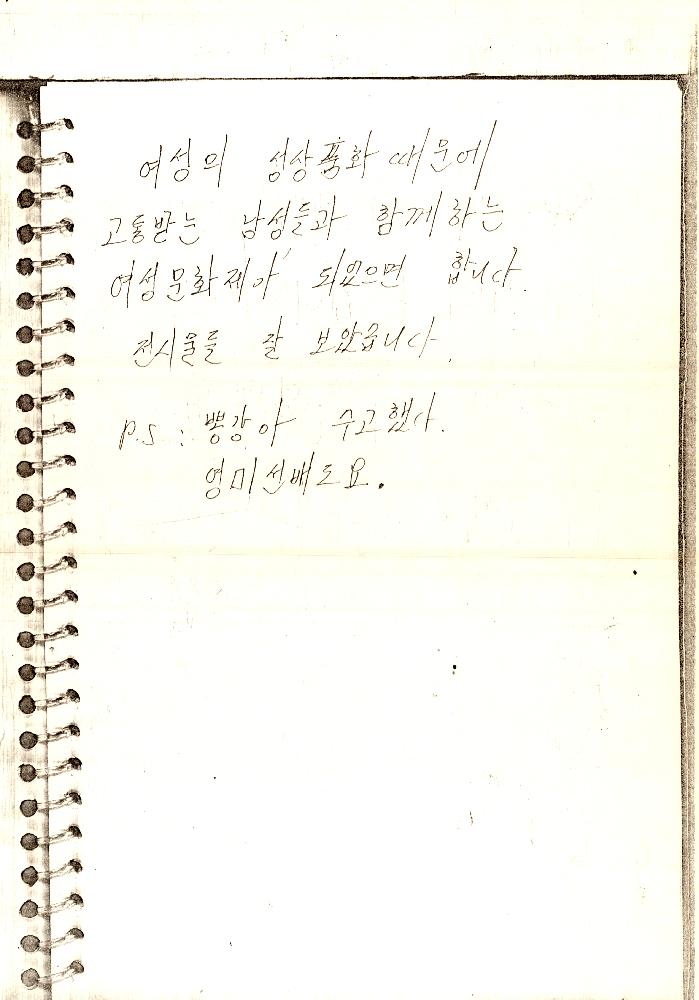 여성의 성상품화 때문에
고통받는 남성들과 함께하는
여성문화제가 되었으면 합니다.
전시물들 잘 보았습니다.
P.S : 뽕강아 수고했다.
영미선배도요.